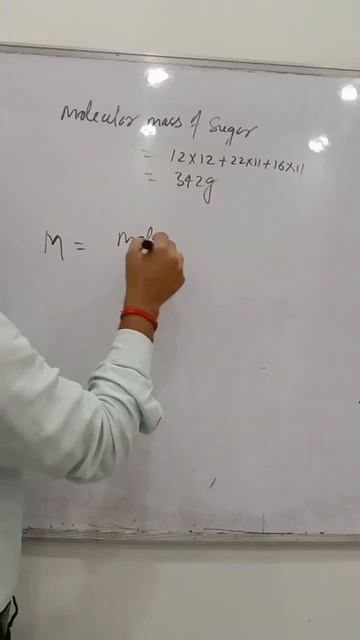 Molecular mass of Sugar
= 12×12+22×11+16×11
= 342g
M = mol